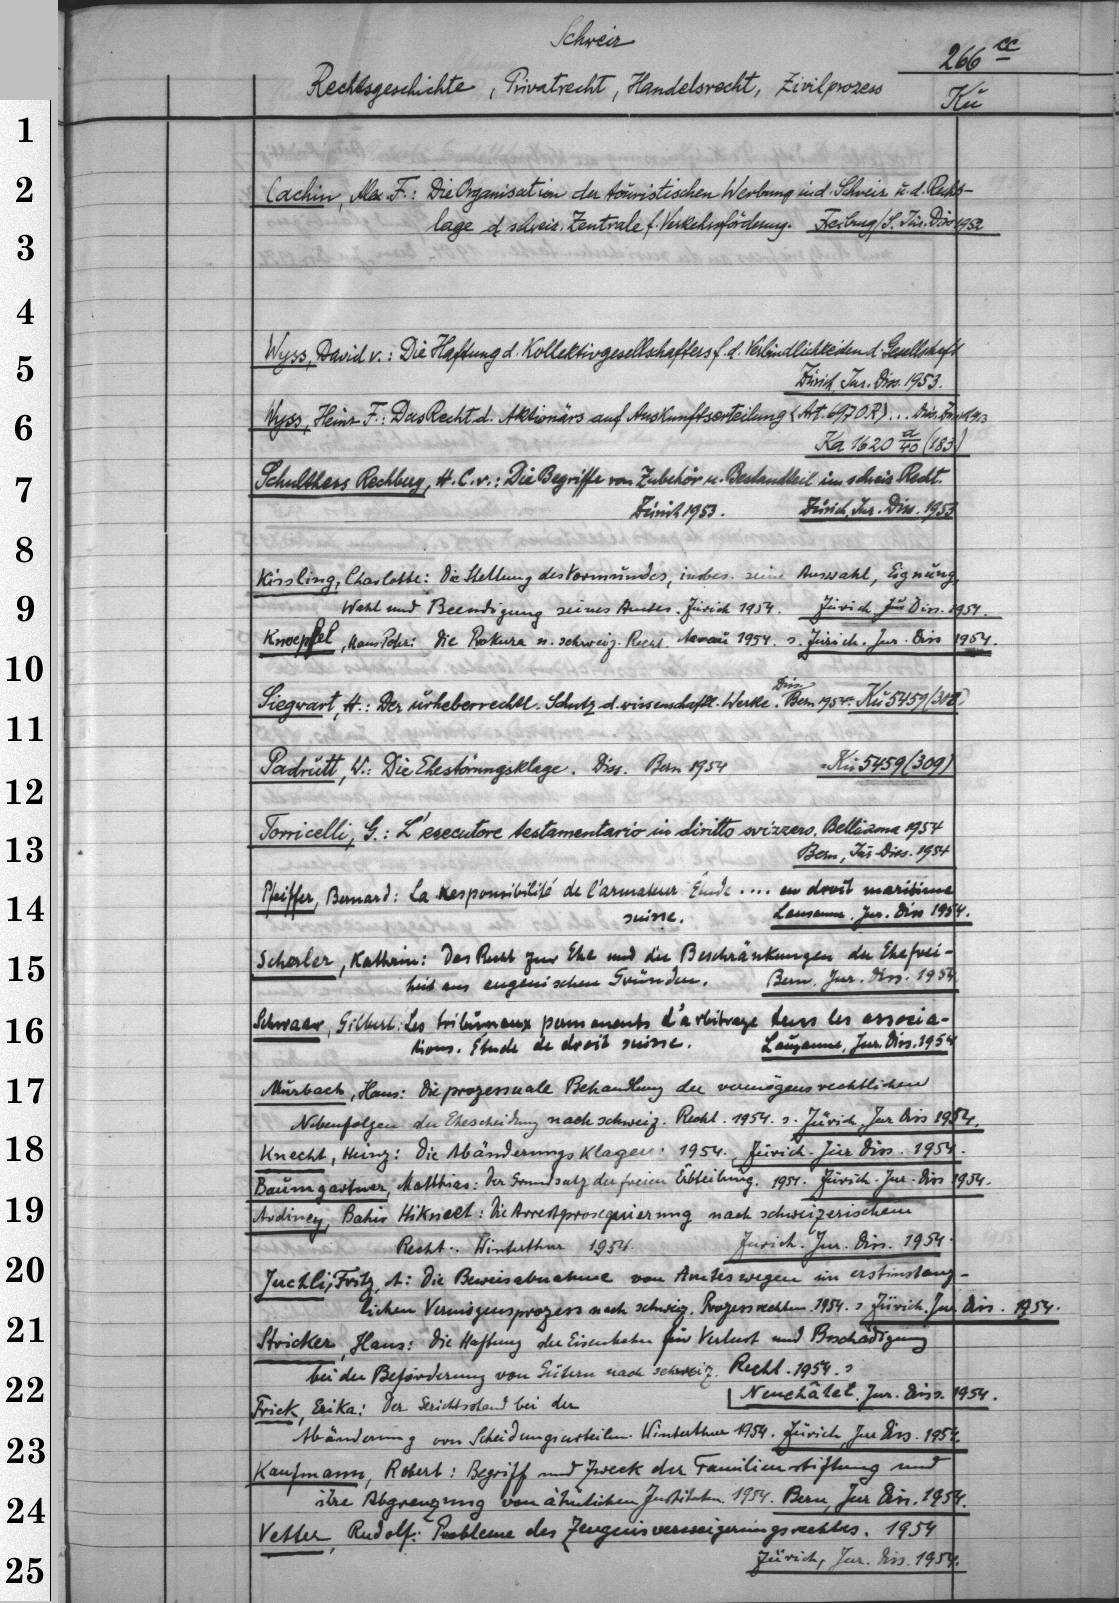 Schweiz
266 cc
Rechtsgeschichte, Privatrecht, Handelsrecht, Zivilprozess
Kü
1
2
Cachin, Alex. F.: Die Organisation der touristischen Werbung in d. Schweiz u. d. Rechts-
lage d. schweiz. Zentrale f. Verkehrsförderung. Freiburg/S. Jur. Diss 1952
3
4
Wyss, David v.: Die Haftung d. Kollektivgesellschafters f. d. Verbindlichkeiten d. Gesellschaft
5
Zürich, Jur. Diss. 1953.
Wyss, Heinz F.: Das Recht d. Aktionärs auf Auskunftserteilung (Art. 697 OR) .. Diss. Zürich 1953
6
Ka 1620 a/40 (183)
Schulthess Rechberg, H. C. v.: Die Begriffe von Zubehör u. Bestandteil im schweiz Recht.
7
Zürich 1953. Zürich, Jur. Diss. 1953
8
Kissling, Charlotte: Die Stellung des Vormundes, insbes. seine Auswahl, Eignung,
9
Wahl und Beendigung seines Amtes. Zürich 1954. Zürich Jur Diss. 1954.
Knoepfel, Hans Peter: Die Prokura n. schweiz. Recht. Aarau 1954. s. Zürich. Jur. Diss 1954.
10
Siegwart, H.: Der urheberrechtl. Schutz d. wissenschaftl. Werke. Diss Bern 1954 = Kü 5459/(308)
11
Padrutt, W.: Die Ehestörungsklage. Diss. Bern 1954 = Kü 5459 (309)
12
Torricelli, G.: L'esecutore testamentario in diritto svizzero. Bellizona 1954
13
Bern, Jur Diss. 1954
Pfeiffer, Bernard: La responsibilité de l'armateur Étude .... en droit maritime
14
suisse. Lausanne. Jur. Diss 1954.
Scherler, Kathrin: Das Recht zur Ehe und die Beschränkungen der Ehefrei-
15
heit aus eugenischen Gründen. Bern. Jur. Diss. 1954
Schwaar, Gilbert: Les tribunaux permanents d'arbitrage dans les associa-
16
tions. Etude de droit suisse. Lausanne, Jur. Diss. 1954
Murbach, Hans: Die prozessuale Behandlung der vermögensrechtlichen
17
Nebenfolgen der Ehescheidung nach schweiz. Recht. 1954. s. Zürich Jur Diss 1954.
Knecht, Heinz: Die Abänderungsklagen. 1954. Zürich. Jur Diss. 1954.
18
Baumgartner, Matthias: Der Grundsatz der freien Erbteilung. 1954. Zürich. Jur. Diss 1954.
Ardiney, Bahir Hikmet: Die Arrestprosequierung nach schweizerischem
19
Recht. Winterthur 1954. Zürich. Jur. Diss. 1954.
Juchli, Fritz, A.: Die Beweisabnahme von Amtes wegen im erstinstanz-
20
lichen Vermögensprozess nach schweiz. Prozessrechten. 1954. s Zürich. Jur. Diss. 1954.
Stricker, Hans: Die Haftung der Eisenbahn für Verlust und Beschädigung
21
bei der Beförderung von Gütern nach schweiz. Recht. 1954. s
Neuchâtel. Jur. Diss. 1954.
22
Frick, Erika: Der Gerichtsstand bei der
Abänderung von Scheidungsurteilen. Winterthur 1954. Zürich, Jur Diss. 1954.
23
Kaufmann, Robert: Begriff und Zweck der Familienstiftung und
ihre Abgrenzung von ähnlichen Instituten. 1954. Bern, Jur Diss. 1954.
24
Vetter, Rudolf: Probleme des Zeugnisverweigerungsrechtes. 1954
Zürich, Jur. Diss. 1954.
25